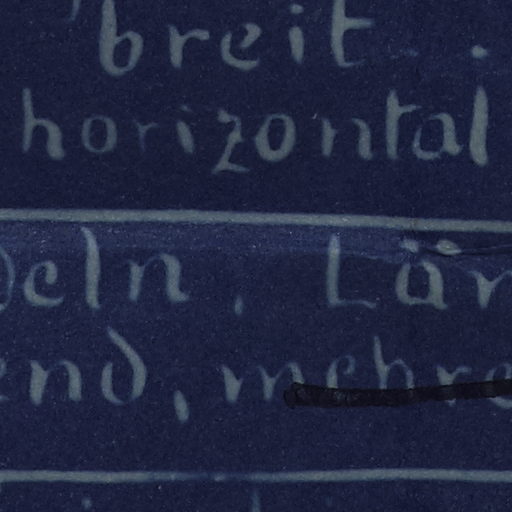 breit .
horizontal
eln , Lär
end, mehre